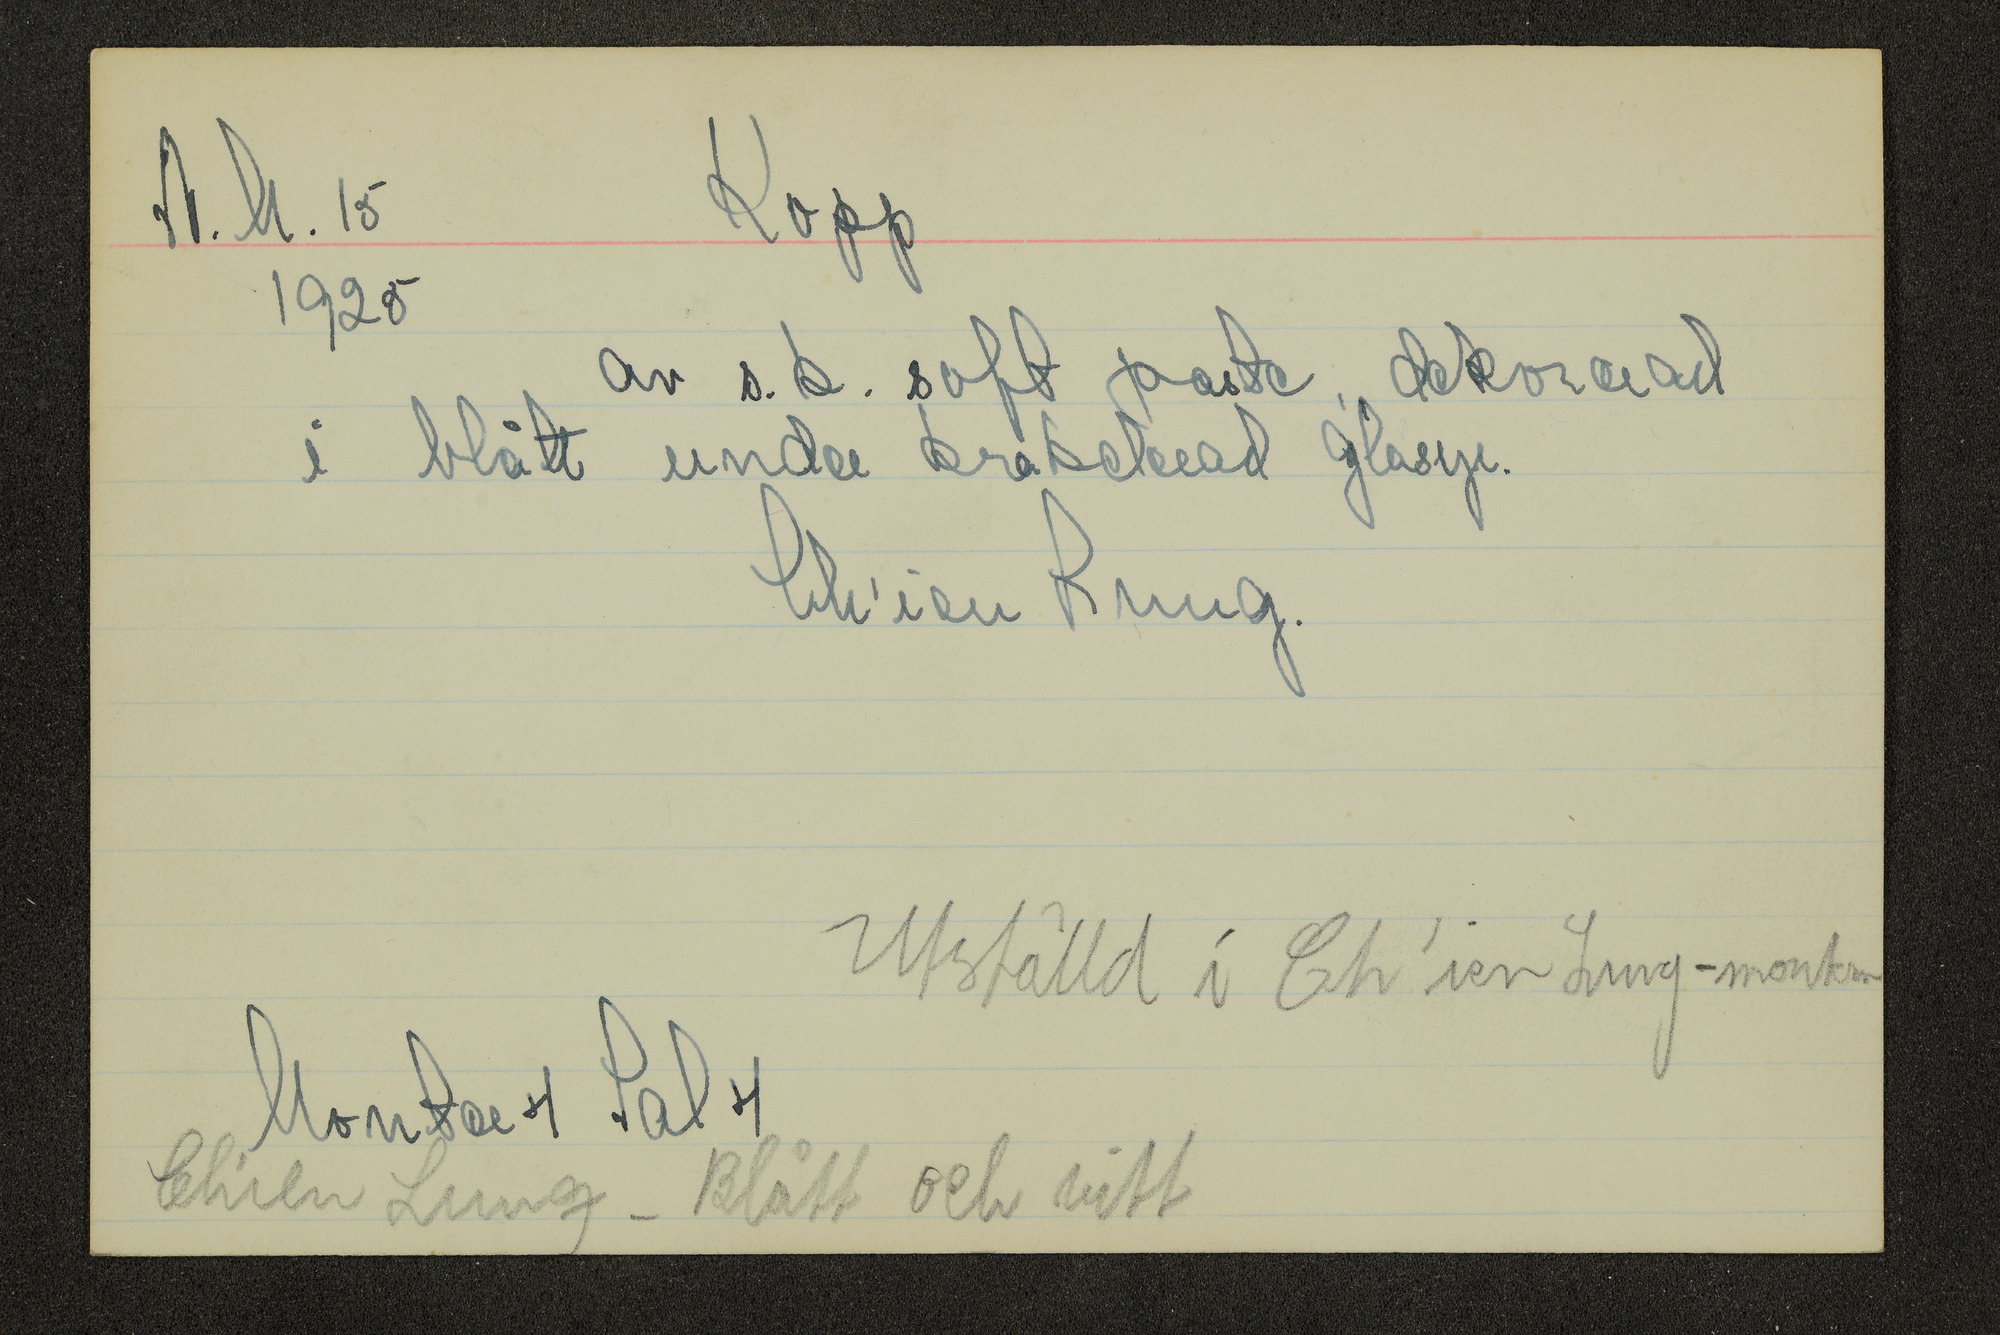 N.M. 15 Kopp
1925
av s.k. soft paste, dekorerad
i blått under krakelerad glasyr.
Ch'ien Lung.
Utställd i Ch'ien Lung-montern
Monter 4 Sal 4
Ch'ien Lung - Blått och vitt